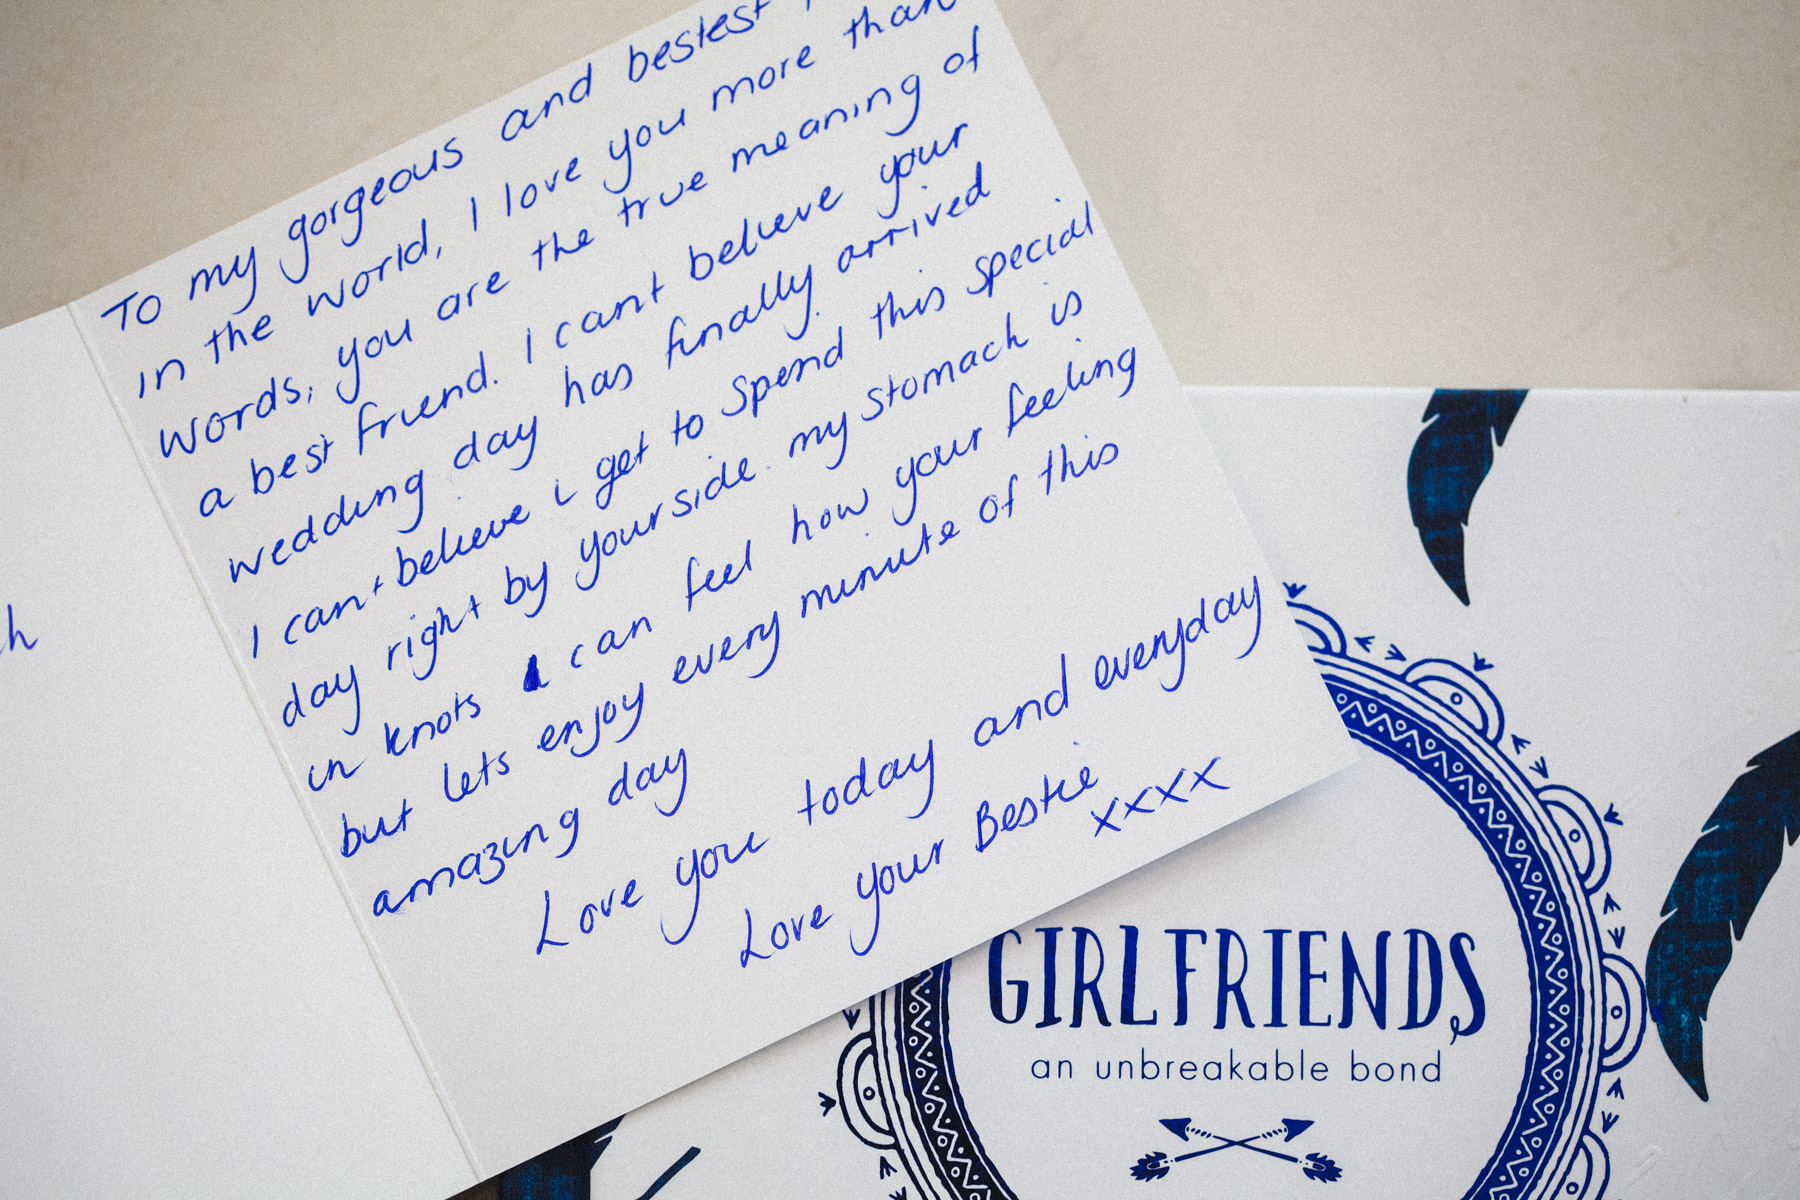 To my gorgeous and bestest
in the world, I love you more than
words, you are the true meaning of
a best friend. I cant believe your
wedding day has finally arrived
I cant believe i get to spend this special
day right by your side. my stomach is
in knots I can feel how your feeling
but lets enjoy every minute of this
amazing day
Love you today and everyday
Love your Bestie
xxxx
h
GIRLFRIENDS
an unbreakable bond